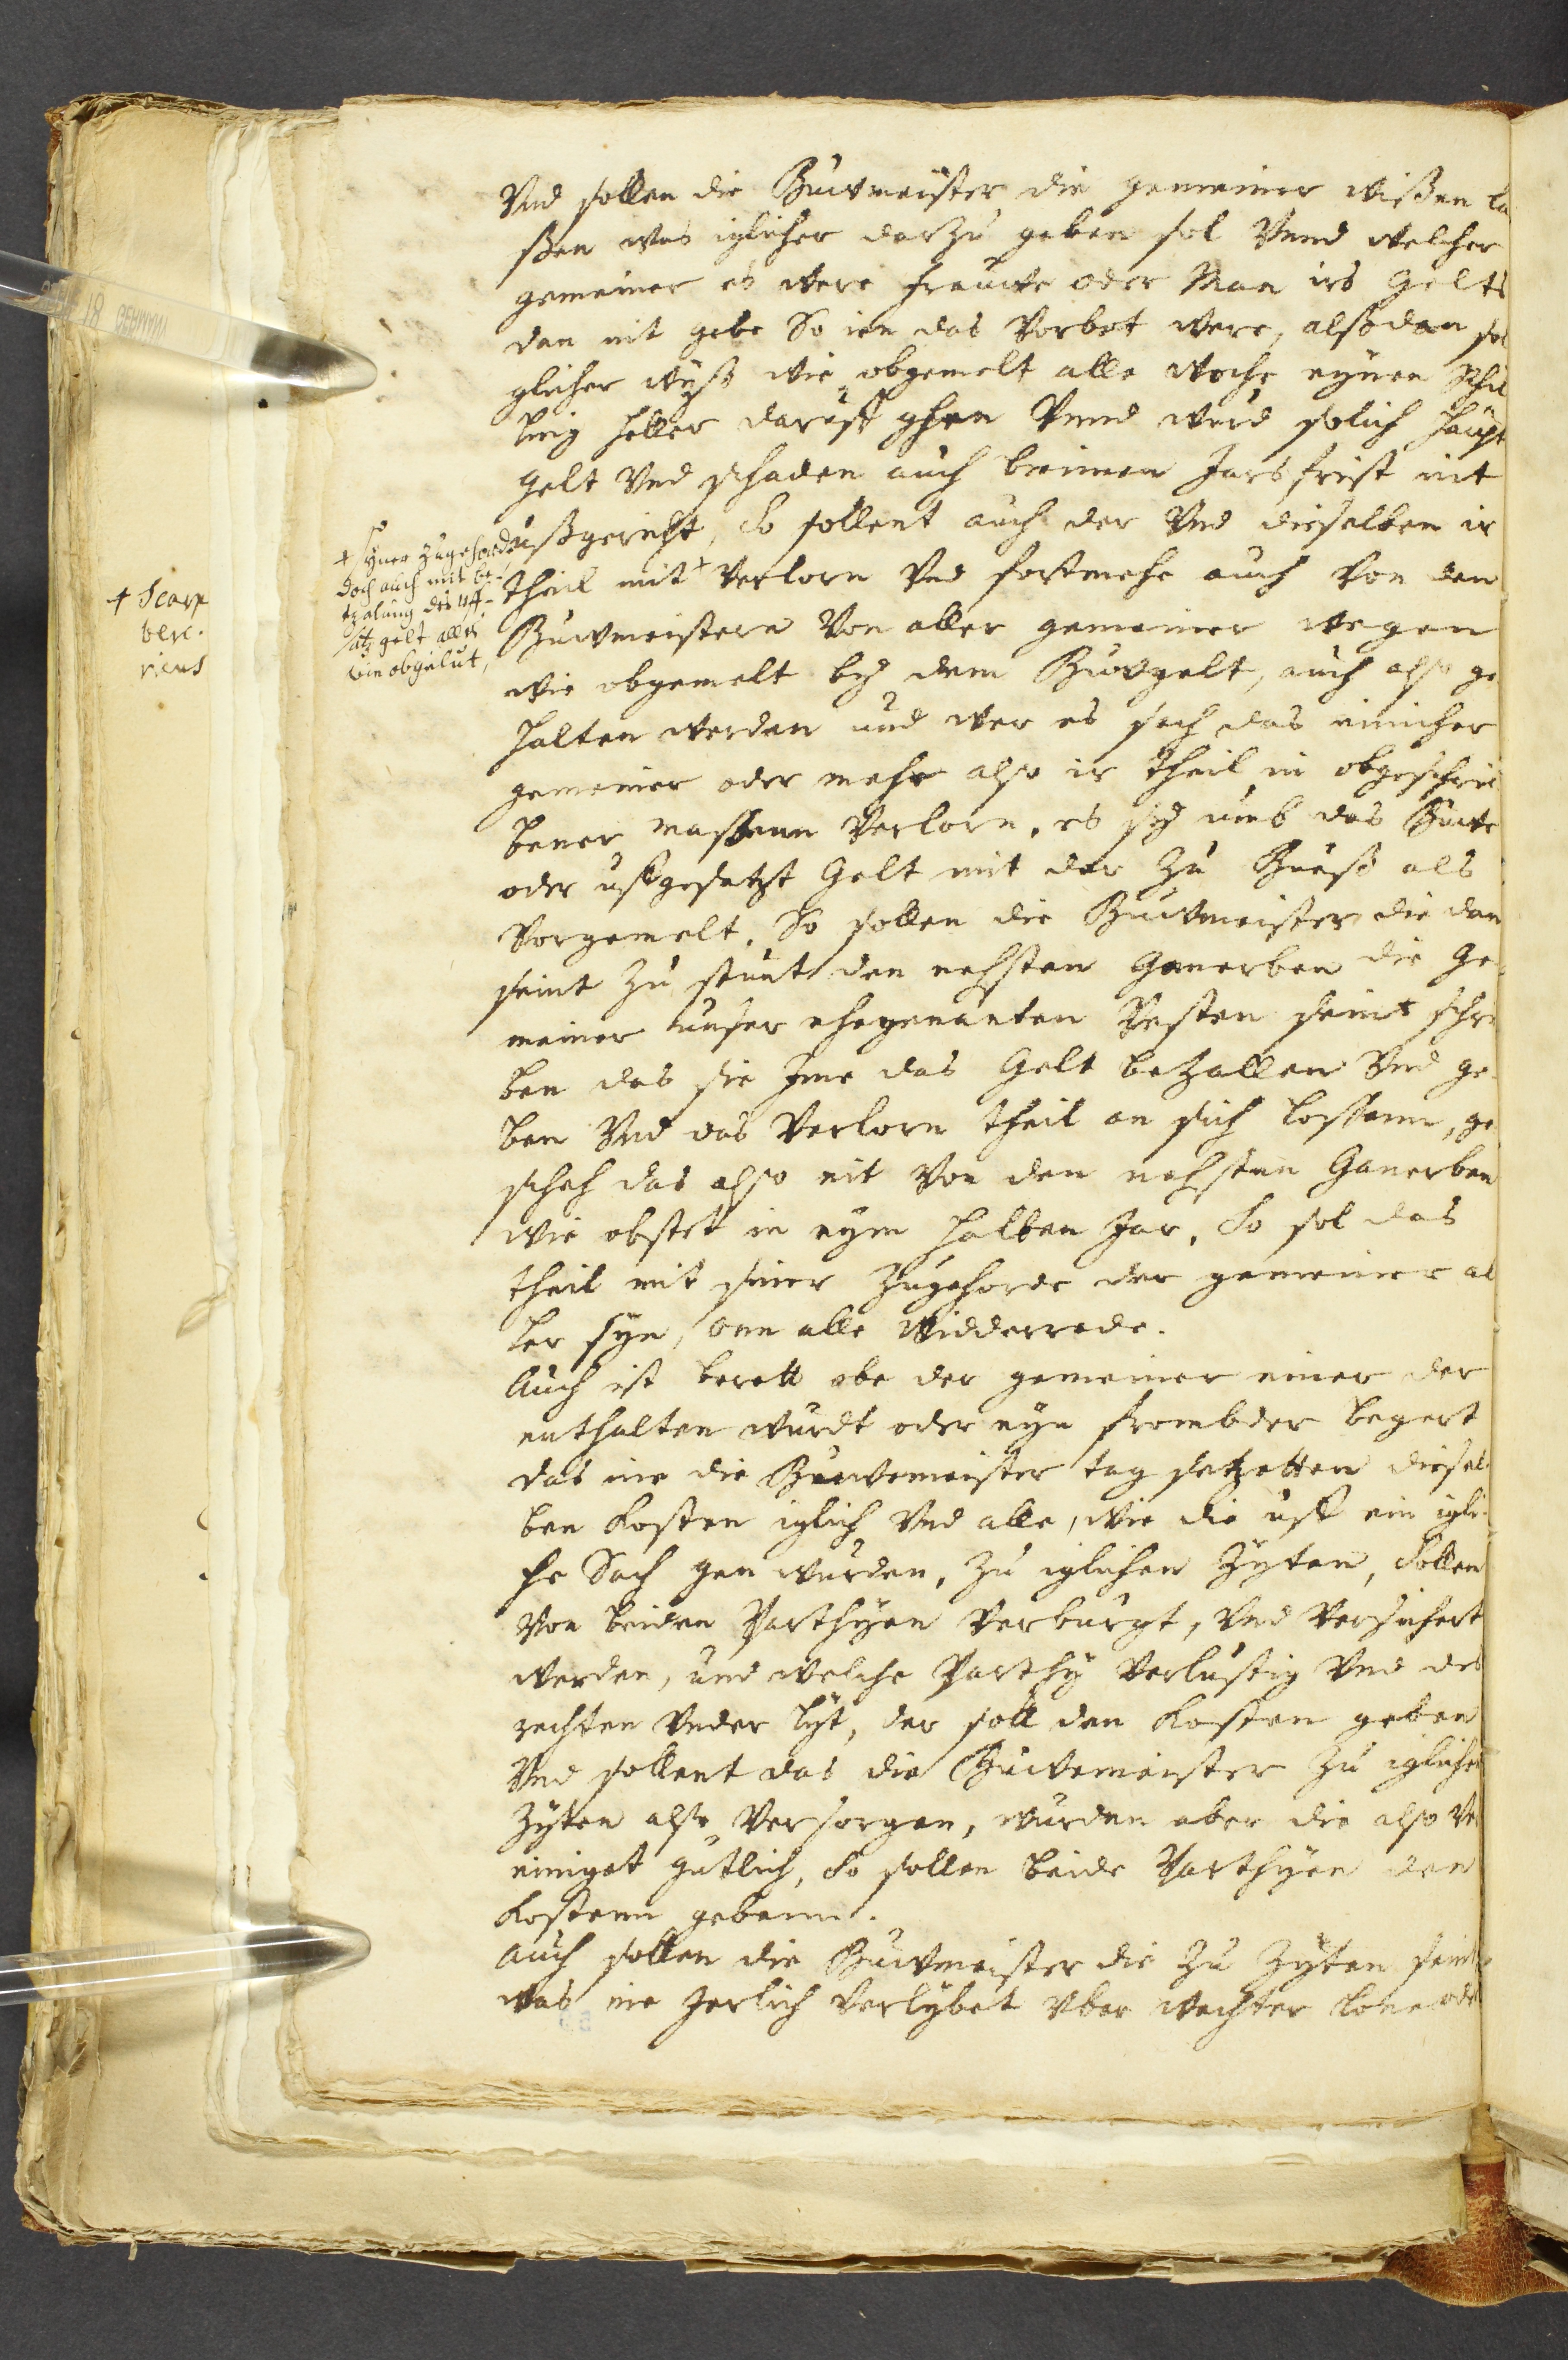 Vnd sollen die Buwmeister die gemeiner wissen la
ssen was iglicher darzu geben sol Vnnd welcher
gemeiner es were frauwe oder Man irs gelts
dan nit gebe So ien das Verbot were, alssdan sol
glicher wyss wie obgemelt alle woche eynen Schil
ling heller daruff ghen Vnnd wurd solich haupt
gelt Vnd schaden auch bninnen Jars frist nit
ussgericht, So sollent auch der Vnd dieselben ir
theil mit + Verlorn Vnd fortmehe auch von den
Buwmeistern von aller gemeiner wegen
wie obgemelt by dem Buwgelt, auch also ge
halten werden und wer es sach das einicher
gemeiner oder mehr also ir theil in obgeschrie
bener massenn Verlorn, es sy umb das Buwe
oder uffgesatzt gelt mit der zu Buess als
Vorgemelt. So sollen die Buwmeister die dan
seint zu stunt den nehsten Ganerben die ge
meiner unser ehegenanten Vesten seint schre
ben das sie Ime das gelt bezallen Vnd ge
ben Vnd das Verlorn theil an sich lossenn, ge
scheh das also nit von den nehsten Ganerben
wie obstet in eym halben Jar, So sol das
theil mit siner zugehorde der gemeiner al
ler syn, onn alle Widderrede.
Auch ist berett obe der gemeiner einer der
enthalten wurdt oder eyn frembder begert
das ine die Buwemeister tag setzetten diesel
ben kosten iglich Vnd alle, wie die uff ein igli
che Sach gen wurden, zu iglichen Zyten, Sollen
von beiden Parthyen Verburgt, Vnd Versichert
werden, und welche Parthy Verlustig Vnd des
rechten Vnder lyt, der soll den kosten geben
Vnd sollent das die Buwemeister zu iglichen
Zyten also Versorgen, wurden aber die also Ve
einiget gutlich, So sollen beide Parthyen den
kostenn gebenn.
Auch sollen die Buwmeister die zu Zyten seint
was ine Jerlich Verlybet vber wechter lone oder
+ syner zugehorde
doch auch mit be-
tzalung des uff-
satz gelt alles
wie obgelut,
+ Scarp